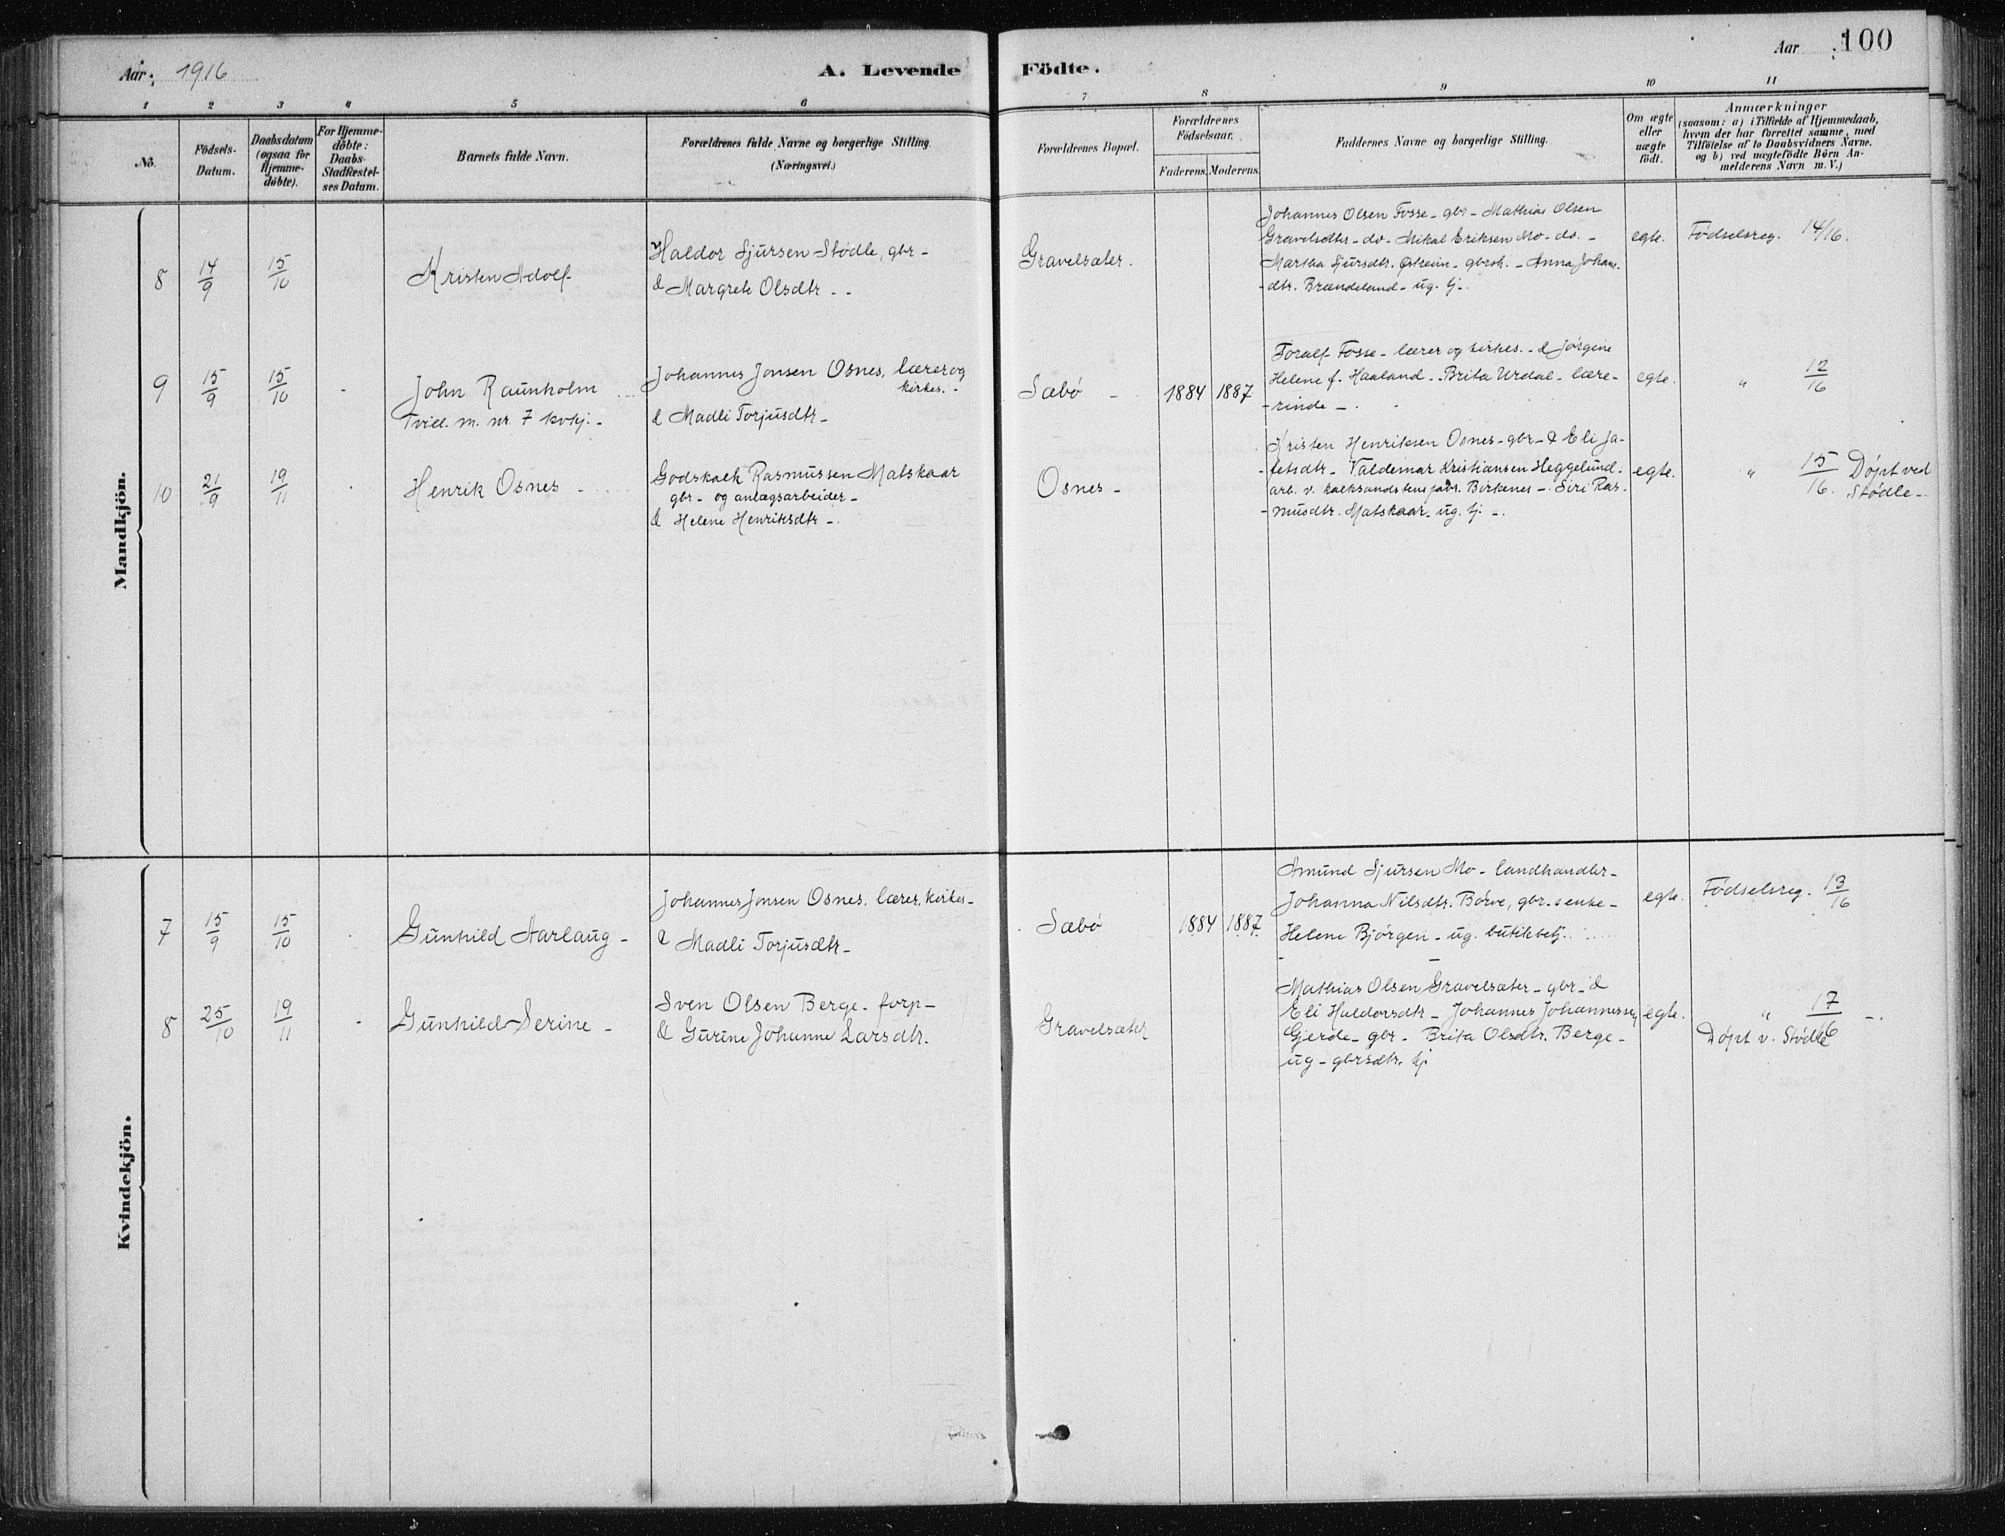 Aar: 1916
A. Levende Födte.
Aar
100
1 2 3 4 5 6 7 8 9 10 11
No.
Födsels-
Datum.
Daabsdatum
(ogsaa for
Hjemme-
döbte).
For Hjemme-
döbte:
Daabs-
Stadfæstel-
ses Datum.
Barnets fulde Navn.
Forældrenes fulde Navne og borgerlige Stilling.
(Næringsvei.)
Forældrenes Bopæl.
Forældrenes
Födselsaar.
Faderens. Moderens.
Faddernes Navne og borgerlige Stilling.
Om ægte
eller
uægte
födt.
Anmærkninger
(saasom: a) i Tilfælde af Hjemmedaab,
hvem der har forrettet samme, med
Tilföielse af to Daabsvidners Navne.
og b) ved uægtefödte Börn An-
melderens Navn m. V.)
Mandkjön.
8
14/9
15/10
Kristen Adolf
Haldor Sjursen Stødle, gbr -
& Margrete Olsdtr - -
Gravelsæter.
Johannes Olsen Fosse - gbr - Mathias Olsen
Gravelsæter - do - Mikal Eriksen Mo - do. -
Martha Sjursdtr. Østeim - gbrsh. - Anna Johans-
- dtr. Brændeland - ug. tj -
egte.
Fødselsreg. 14/16.
9
15/9
15/10
-
John Raunholm
Tvill. m. nr 7 kvkj. -
Johannes Jonsen Osnes, lærer og
kirkes. -
& Madli Torjusdtr -
Sæbö -
1884 1887
Toralf Fosse - lærer og kirkes. - & Jörgine
Helene f. Haaland - Brita Urdal - lære-
- rinde -
egte.
" 12/16
10
21/9
19/11
Henrik Osnes -
Godskalk Rasmussen Matskaar
gbr - og anlægsarbeider -
& Helene Henriksdtr -
Osnes -
Kristen Henriksen Osnes - gbr - & Eli Ja-
- fetsdtr - Valdemar Kristiansen Heggelund -
arb. v. kalksandstensfabr. Birkenes - Siri Ras-
- musdtr. Matskaar - ug. tj -.
egte.
" 15/16. Døpt ved
Stødle -
Kvindekjön.
7
15/9
15/10
Gunhild Aarlaug -
Johannes Jonsen Osnes, lærer, kirkes -
& Madli Torjusdtr -
Sæbö
1884 1887.
Amund Sjursen Mo - landhandler -
Johanna Nilsdtr. Börve, gbr.senke -
Helene Bjørgen - ug. butikbetj.
egte.
Fødselsreg. 13/16
8
25/10
19/11
-
Gunhild Serine -
Sven Olsen Berge - forp -
& Gurine Johanne Larsdtr.
Gravelsæter
Mathias Olsen Gravelsæter - gbr - &
Eli Haldorsdtr - Johannes Johannessen
Gjerde - gbr - Brita Olsdtr. Berge -
ug - gbrsdtr. tj
egte.
" 17/16 -.
Døpt v. Stødle